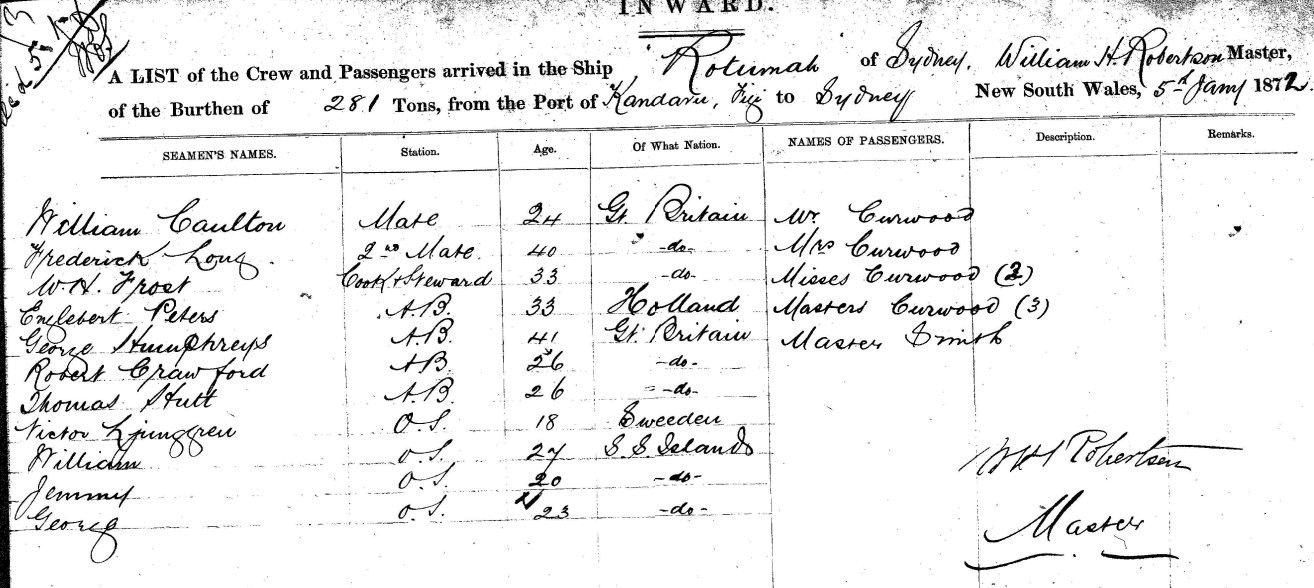 INWARD.
A LIST of the Crew and Passengers arrived in the Ship "Rotumah" of Sydney, William H. Robertson Master,
of the Burthen of 281 Tons, from the Port of Kandavu, Fiji to Sydney New South Wales, 5th Jany 1872.
SEAMEN'S NAMES. Station. Age. Of What Nation. NAMES OF PASSENGERS. Description. Remarks.
William Caulton Mate 24 Gt. Britain Mr. Curwood
Frederick Long. 2nd Mate. 40 -do- Mrs Curwood
W. H. Frost Cook & Steward 33 -do- Misses Curwood (2)
Englebert Peters A.B. 33 Holland Masters Curwood (3)
George Humphreys A.B. 41 Gt. Britain Master Smith
Robert Crawford AB. 26 -do-
Thomas Hutt A.B. 26 -do-
Victor Ljunggren O.S. 18 Sweeden
William O.S. 27 S.S. Islands
Jemmy O.S. 20 -do-
George O.S. 23 -do-
WH Robertson
Master